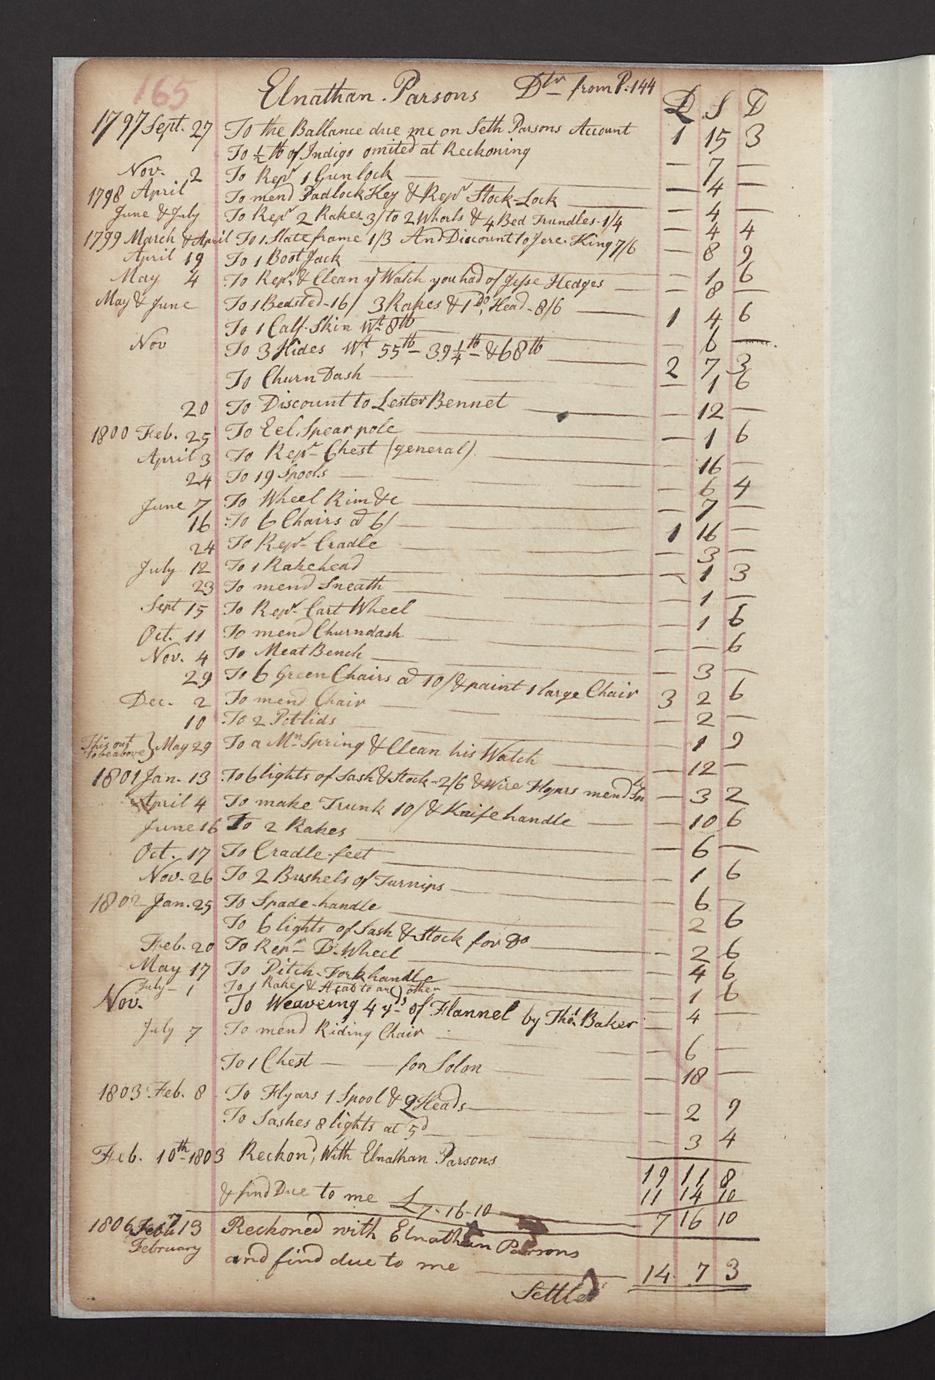 165 Elnathan Parsons Dtr from P. 144 £ S D
1797 Sept. 27 To the Ballance due me on Seth Parsons Account 1 15 3
To ½ lb of Indigo omited at Reckoning — 7 —
Nov. 2 To Repr 1 Gun lock — 4 —
1798 April To mend Padlock Key & Repr Stock-Lock — 4 —
June & July To Repr 2 Rakes 3/ to 2 Whorls & 4 Bed Trundles-1/4 — 4 4
1799 March & April To 1 Slate frame 1/3 And Discount to Jere. King 7/6 — 8 9
April 19 To 1 Boot Jack — 1 6
May 4 To Repr & Clean ye Watch you had of Jesse Hedges — 8 —
May & June To 1 Bedsted-16/ 3 Rakes & 1 Do Head-8/6 1 4 6
To 1 Calf-Skin Wt 8 lb — 6 —
Nov To 3 Hides Wt 55 lb - 39¼ lb - & 68 lb 2 7 3
To Churn Dash — 1 6
20 To Discount to Lester Bennet — 12 —
1800 Feb. 25 To Eel, Spear pole — 1 6
April 3 To Repr Chest (general) — 16 —
24 To 19 Spools — 6 4
June 7 To Wheel Rim &c — 7 —
16 To 6 Chairs @ 6/ 1 16 —
24 To Repr Cradle — 3 —
July 12 To 1 Rakehead — 1 3
23 To mend Sneath — 1 —
Sept 15 To Repr Cart Wheel — 1 6
Oct. 11 To mend Churndash — — 6
Nov. 4 To Meat Bench — 3 —
29 To 6 Green Chairs @ 10/ & paint 1 large Chair 3 2 6
Dec. 2 To mend Chair — 2 —
10 To 2 Potlids — 1 9
This out to be above } May 29 To a Mn Spring & Clean his Watch — 12 —
1801 Jan. 13 To 6 lights of Sash & Stock-2/6 & Wire Flyars mend — 3 2
April 4 To make Trunk 10/ & Knife handle — 10 6
June 16 To 2 Rakes — 6 —
Oct. 17 To Cradle-feet — 1 6
Nov. 26 To 2 Bushels of Turnips — 6 —
1802 Jan. 25 To Spade-handle — 2 6
To 6 lights of Sash & Stock for Do — 2 6
Feb. 20 To Repr D. Wheel — 4 6
May 17 To Pitch-Fork handle — 1 6
July 1 To 1 Rake & Head to another
Nov. To Weaving 4 yds of Flannel by Thos. Baker — 4 —
July 7 To mend Riding Chair — 6 —
To 1 Chest — for Solon — 18 —
1803 Feb. 8 To Flyars 1 Spool & 2 Heads — 2 9
To Sashes 8 lights at 5d — 3 4
Feb. 10th 1803 Reckond, With Elnathan Parsons 19 11 8
11 14 10
& find Due to me £7-16-10 7 16 10
1806 Feb 13 Reckoned with Elnathan Parsons
February and find due to me 14 7 3
Settled